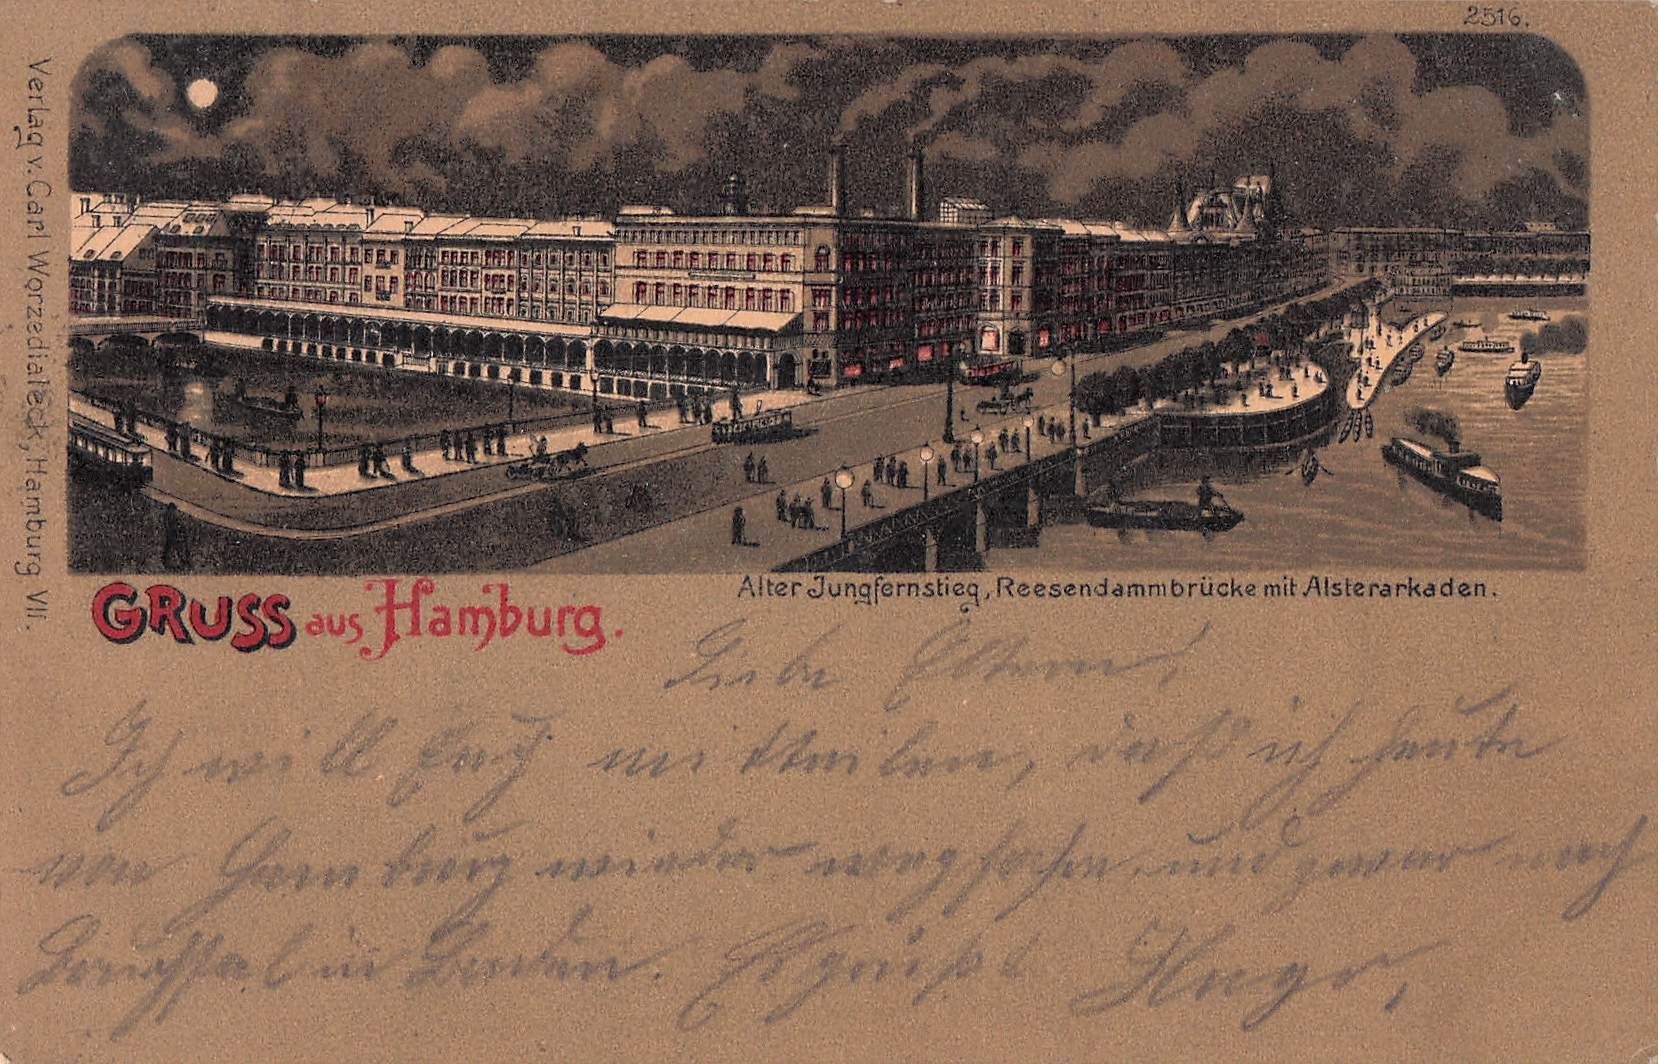 2516.
Verlag v. Carl Worzedialeck, Hamburg VII.
GRUSS aus Hamburg.
Alter Jungfernstieg, Reesendammbrücke mit Alsterarkaden.
Liebe Eltern,
Ich will Euch mitteilen, daß ich heute
von Hamburg wieder wegfahre, und zwar nach
Bruchsal in Baden. Es grüßt Hugo,